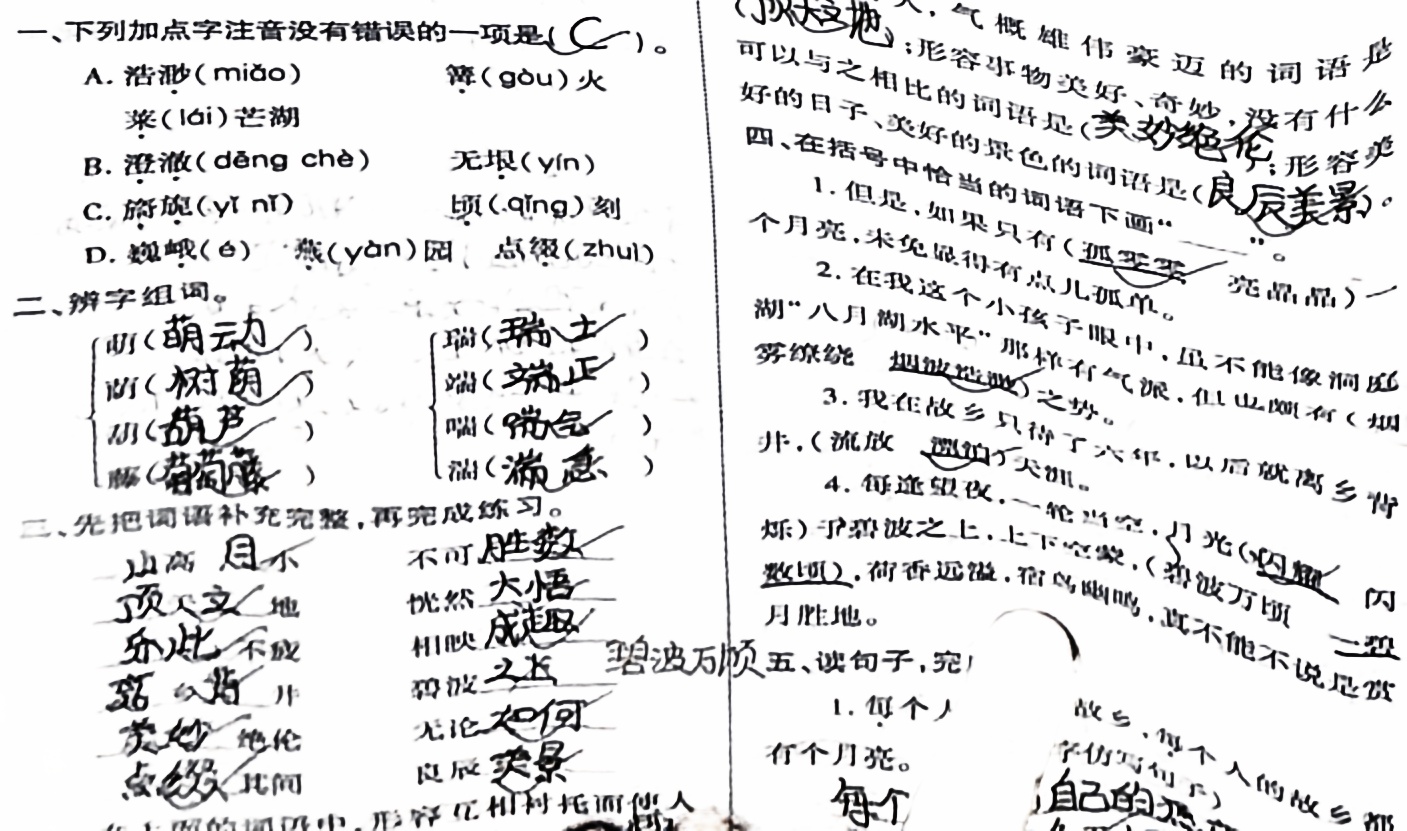 一、下列加点字注音没有错误的一项是( C )。
A. 浩渺(miǎo) 篝(gòu)火
菜(lái)芒湖
B. 澄澈(dēng chè) 无垠(yín)
C. 旖旎(yǐ nǐ) 顷(qǐng)刻
D. 巍峨(é) 燕(yàn)园 点缀(zhuì)
二、辨字组词。
萌(萌云动) 瑞(瑞士)
荫(树荫) 端(端正)
葫(葫芦) 喘(喘气)
藤(葡萄藤) 湍(湍急)
三、先把词语补充完整,再完成练习。
山高月不 不可胜数
顶天文地 恍然大悟
外此不成 相映成趣
背井 碧波之上
美妙绝伦 无论如何
点缀其间 良辰美景
碧波万顷
形容互相衬托而使人
(顶天文地);形容事物美好、奇妙,没有什么
人,气概雄伟豪迈的词语是
可以与之相比的词语是(美妙绝伦);形容美
好的日子、美好的景色的词语是(良辰美景)。
四、在括号中恰当的词语下画“____”。
1. 但是,如果只有(孤零零 亮晶晶)一
个月亮,未免显得有点儿孤单。
2. 在我这个小孩子眼中,虽不能像洞庭
湖“八月湖水平”那样有气派,但也颇有(烟
雾缭绕 烟波浩渺)之势。
3. 我在故乡只待了六年,以后就离乡背
井,(流放 漂泊)天涯。
4. 每逢望夜,一轮当空,月光(闪耀 闪
烁)于碧波之上,上下空蒙,(碧波万顷 一碧
数顷),荷香远溢,宿鸟幽鸣,真不能不说是赏
月胜地。
五、读句子,完
1. 每个人 故乡,每个人的故乡都
有个月亮。 字仿写句子)
每个 自己的